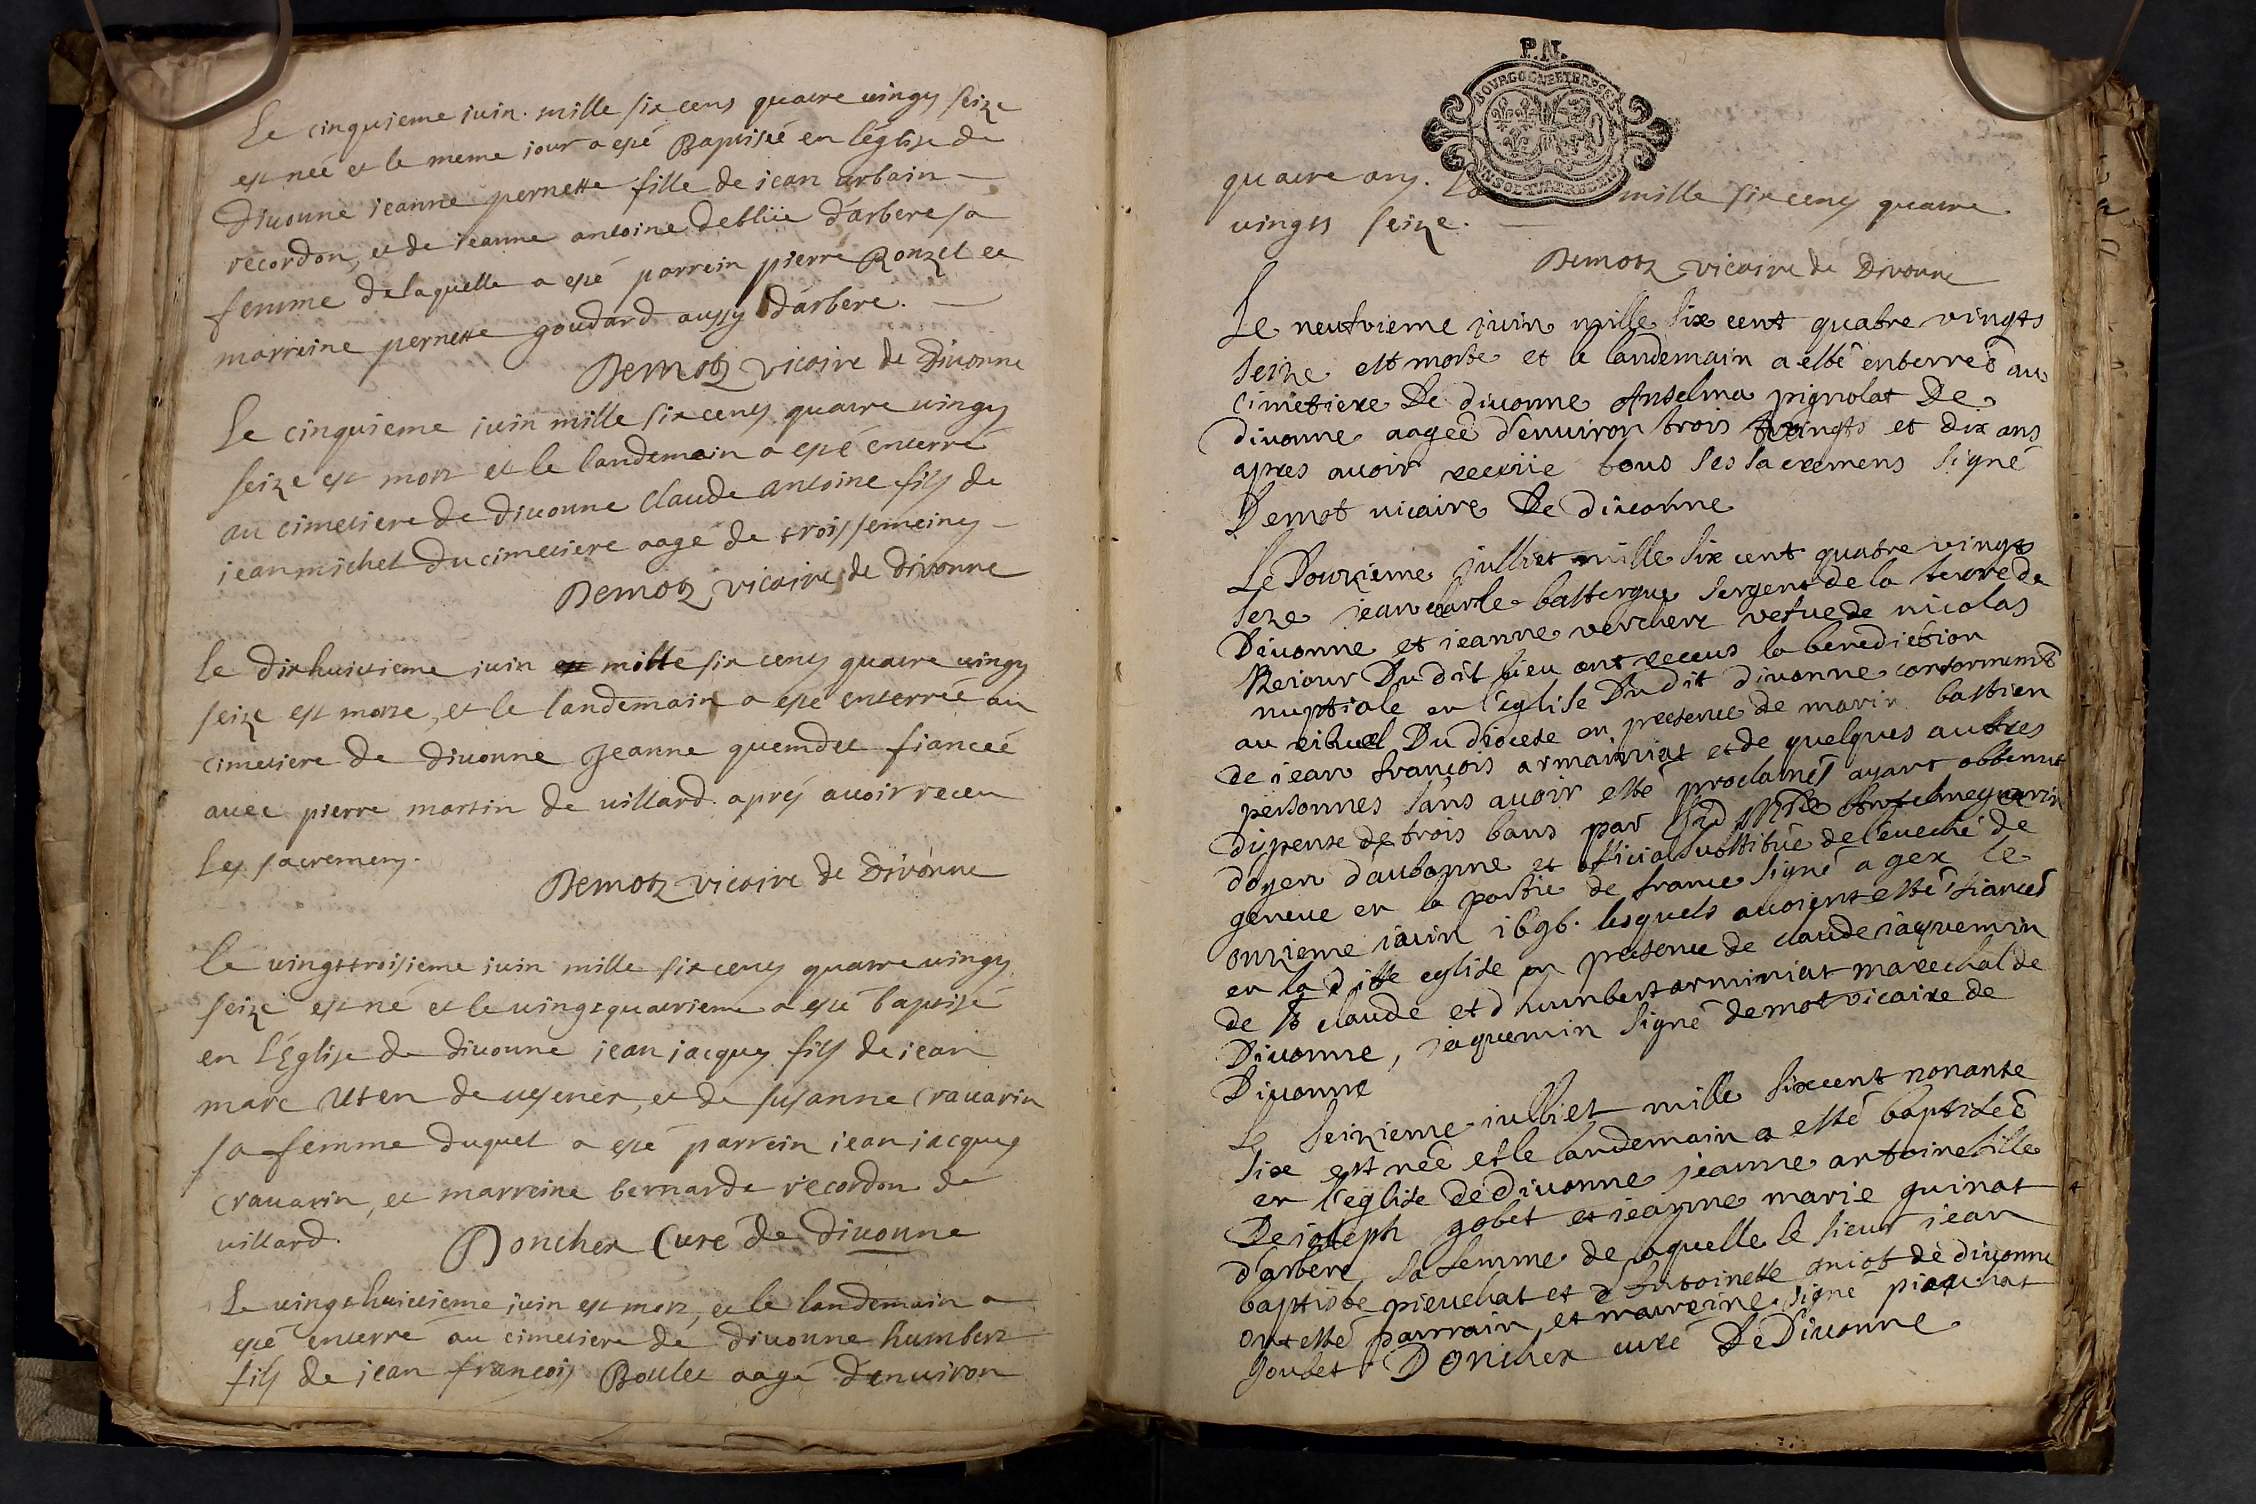 Le cinquieme iuin mille six cens quatre vingts seize
est née et le meme iour a esté Baptisée en l'église de
divonne ieanne pernette fille de iean urbain
recordon, et de ieanne antoine deblüe d'arbere sa
femme de laquelle a esté parrein pierre Ronzel et
marreine pernette goudard aussy d'arbere.
Demotz vicaire de Divonne
Le cinquieme iuin mille six cens quatre vingts
seize est mort et le landemain a esté enterré
au cimetiere de divonne Claude antoine fils de
iean michel du cimetiere aagé de trois semeines
Demotz vicaire de divonne
le dixhuictieme iuin mille six cens quatre vingts
seize est morte, et le landemain a esté enterrée au
cimetiere de divonne Jeanne quemdet fianceé
avec pierre martin de villard. aprés avoir receu
les sacremens.
Demotz vicaire de Divonne
le vingt troisieme iuin mille six cens quatre vingts
seize est né et le vingt quatrieme a esté baptisé
en l'Église de divonne iean iacques fils de iean
marc Uten de vesenex, et de susanne cravarin
sa femme duquel a esté parrein iean iacques
cravarin, et marreine bernarde recordon de
villard.
Doncher Curé de divonne
Le vingt huictieme iuin est mort, et le landemain a
esté enterré au cimetiere de divonne humbert
fils de iean françois Boulet aagé d'environ
P.N.
BOURGOGNE ET BRESSE
quatre ans. mille six cens quatre
vingts seize.
Demotz vicaire de Divonne
Le neufvieme juin mille six cent quatre vingts
seize est morte et le landemain a esté enterreé au
cimetiere De divonne Anselma pignolat De
divonne aageé d'environ trois vingts et dix ans
apres avoir receüe tous ses sacremens signé
Demot vicaire De divonne
Le Douzieme julliet mille six cent quatre vingts
seze jean claude bastergue sergent de la terre de
Divonne et ieanne verchere vefue de nicolas
Reiour Du dit lieu ont receus la benediction
nuptiale en l'eglise Du dit divonne conformement
au rituel Du diocese en presence de marin bastien
de iean françois arminiat et de quelques autres
personnes sans avoir esté proclamés ayant obtenut
dispense de trois bans par
doyen d'aubonne et official substitué de l'eveché de
geneve en la partie de france signé a gex le
onzieme iuin 1696. lesquels avoient esté fiancés
en la ditte eglise en presence de claude iaquemin
de St claude et d'humbert arminiat marechal de
Divonne, iaquemin signé demot vicaire de
Divonne
Le seizieme iulliet mille six cent nonante
six est née et le landemain a esté baptizéé
en l'eglise de divonne jeanne antoine fille
De ioseph gobet et ieanne marie quinat
d'arbere sa femme de laquelle le sieur iean
baptiste pieuchat et d'Antoinette oniot de divonne
ont esté parrain et marreine signé piouchat
Doncher curé De Divonne